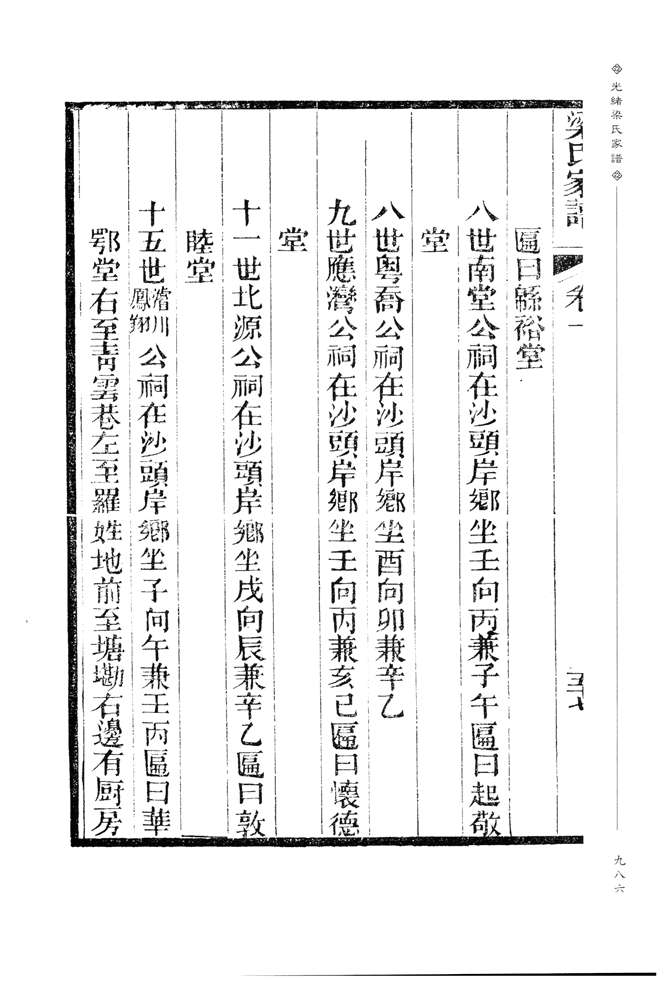 光緒梁氏家譜
梁氏家譜 卷一 五十七
匾曰緜裕堂
八世南堂公祠在沙頭岸鄉坐壬向丙兼子午匾曰起敬
堂
八世粵喬公祠在沙頭岸鄉坐酉向卯兼辛乙
九世應灣公祠在沙頭岸鄉坐壬向丙兼亥已匾曰懷德
堂
十一世北源公祠在沙頭岸鄉坐戌向辰兼辛乙匾曰敦
睦堂
十五世濳川鳳翔公祠在沙頭岸鄉坐子向午兼壬丙匾曰華
鄂堂右至靑雲巷左至羅姓地前至塘墈右邊有厨房
九八六